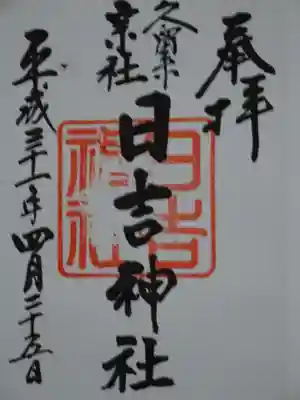 奉拝
久留米
宗社
日吉神社
平成三十一年四月二十五日
日吉
神社